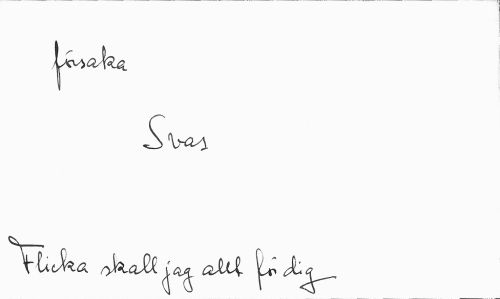 försaka
Svas
Flicka skall jag allt för dig